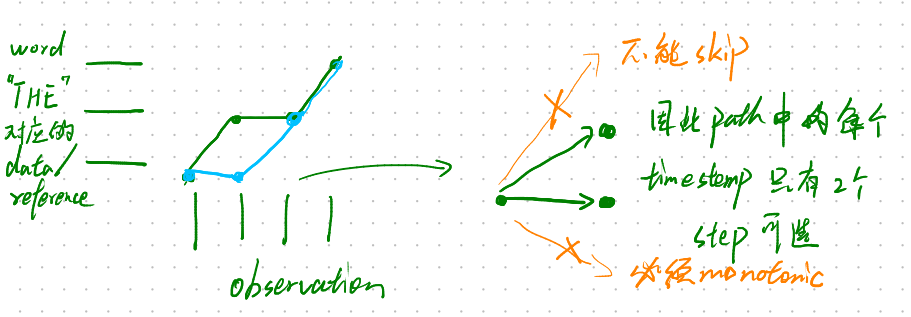 word
"THE"
对应的
data/
reference
observation
不能 skip
因此 path 中的每个
timestemp 只有 2个
step 可选
必须 monotonic